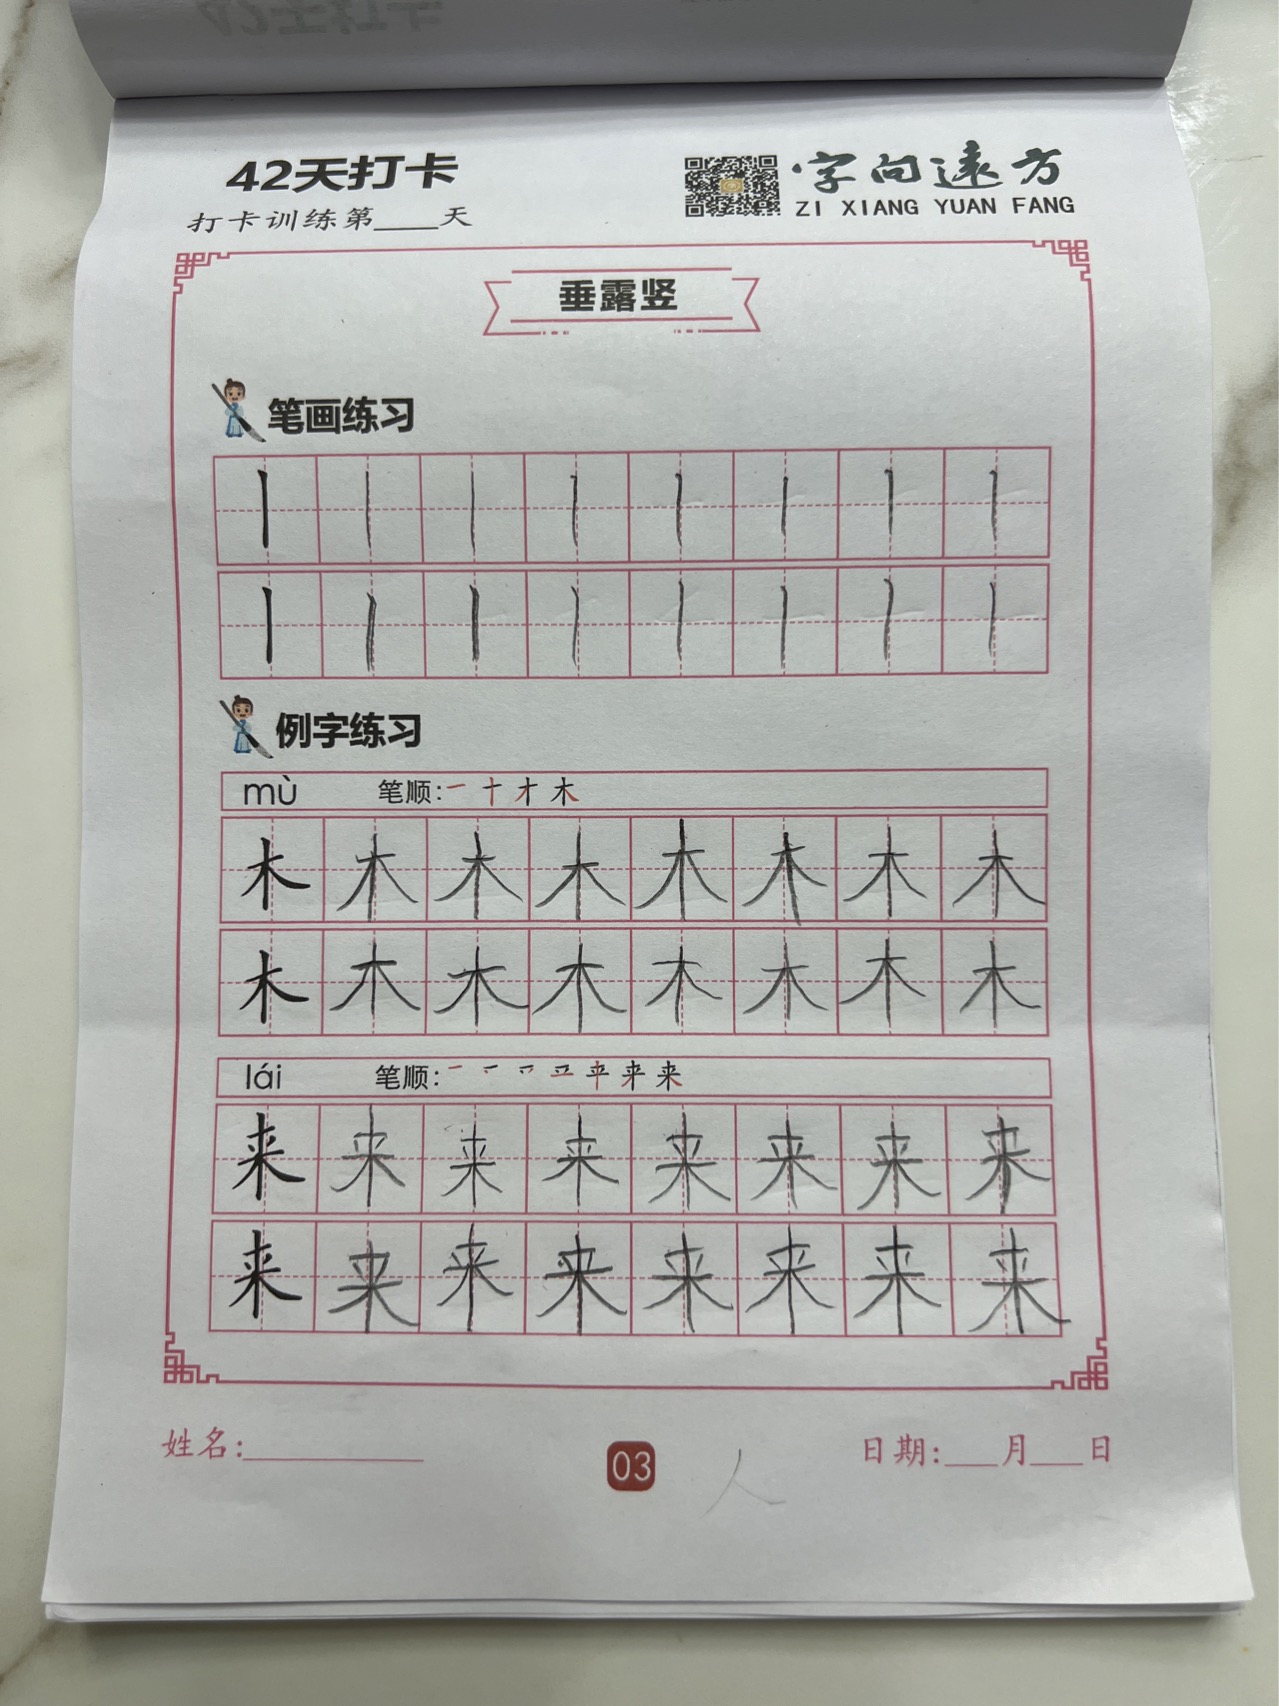 42天打卡
字向远方
打卡训练第____天
ZI XIANG YUAN FANG
垂露竖
笔画练习
丨 丨 丨 丨 丨 丨 丨 丨
丨 丨 丨 丨 丨 丨 丨 丨
例字练习
mù 笔顺:一 十 才 木
木 木 木 木 木 木 木 木
木 木 木 木 木 木 木 木
lái 笔顺:
来 来 来 来 来 来 来 来
来 来 来 来 来 来 来 来
姓名:__________ 03 人 日期:___月___日